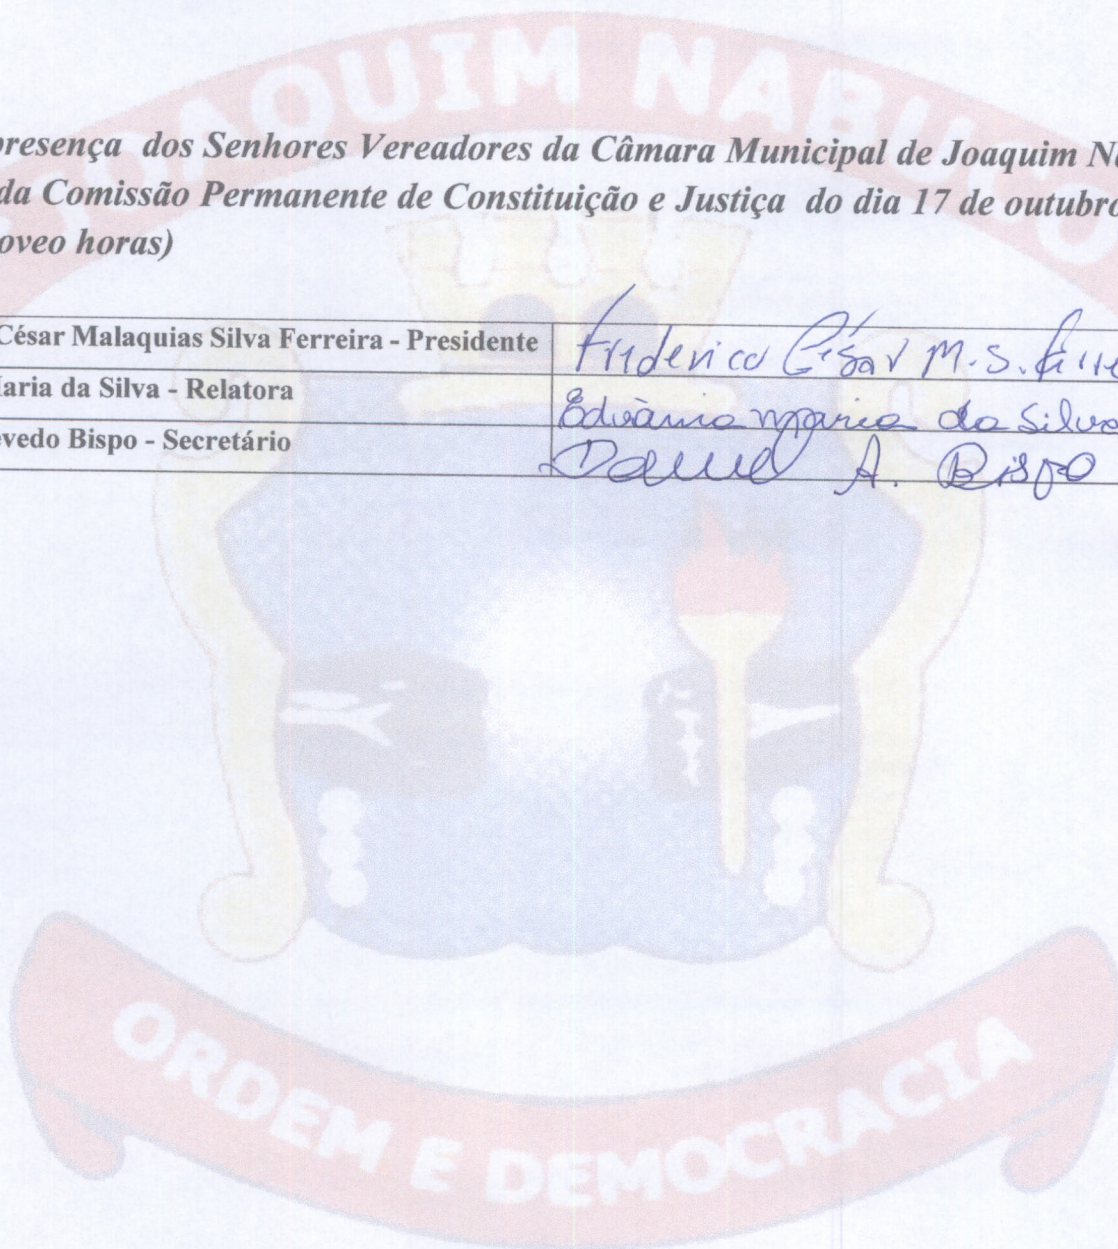 JOAQUIM NABUCO
presença dos Senhores Vereadores da Câmara Municipal de Joaquim Na
da Comissão Permanente de Constituição e Justiça do dia 17 de outubro
oveo horas)
César Malaquias Silva Ferreira - Presidente Frederico César M. S. Ferre
Maria da Silva - Relatora Edvânia Maria da Silva
evedo Bispo - Secretário Daniel A. Bispo
ORDEM E DEMOCRACIA